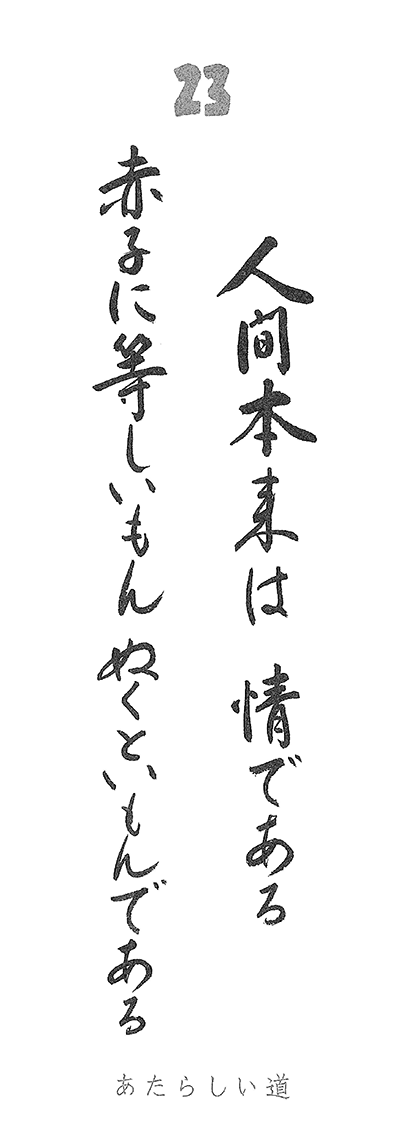 23
人間本来は 情である
赤子に等しいもん ぬくといもんである
あたらしい道